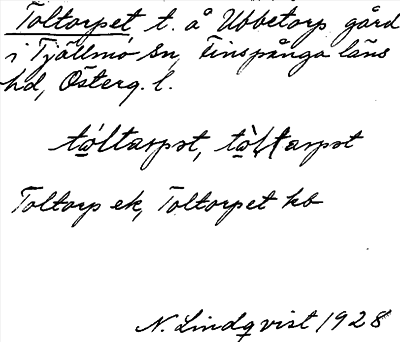 Toltorpet, t. å Ubbetorp gård
i Tjällmo sn, Finspånga läns
hd, Österg. l.
tóltarpət, tòltarpət
Toltorp ek, Toltorpet kb
N. Lindqvist 1928